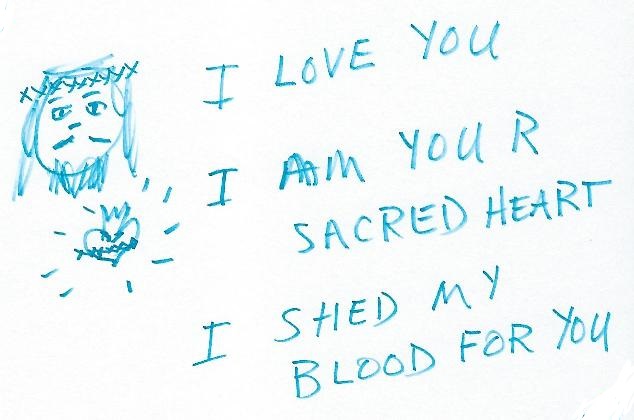 I LOVE YOU
I AM YOUR
SACRED HEART
I SHED MY
BLOOD FOR YOU